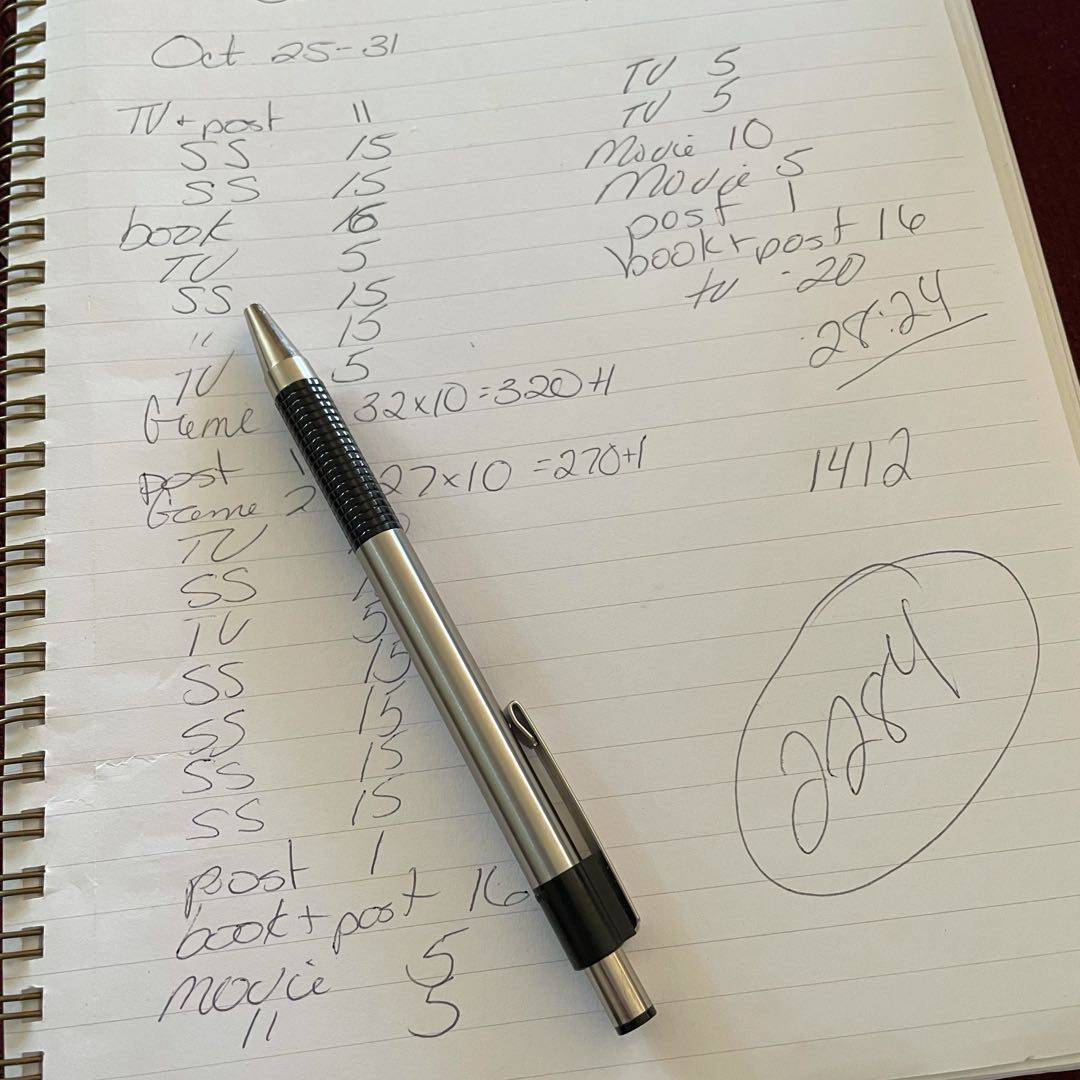 Oct 25-31
TV + post 11
SS 15
SS 15
book 16
TV 5
SS 15
" 15
TV 5
Game 32x10=320+1
post 1
Game 2 27x10 =270+1
TV
SS
TV 5
SS 15
SS 15
SS 15
SS 15
post 1
book + post 16
movie 5
" 5
TV 5
TV 5
Movie 10
Movie 5
post 1
book + post 16
tv 20
28:24
1412
2284